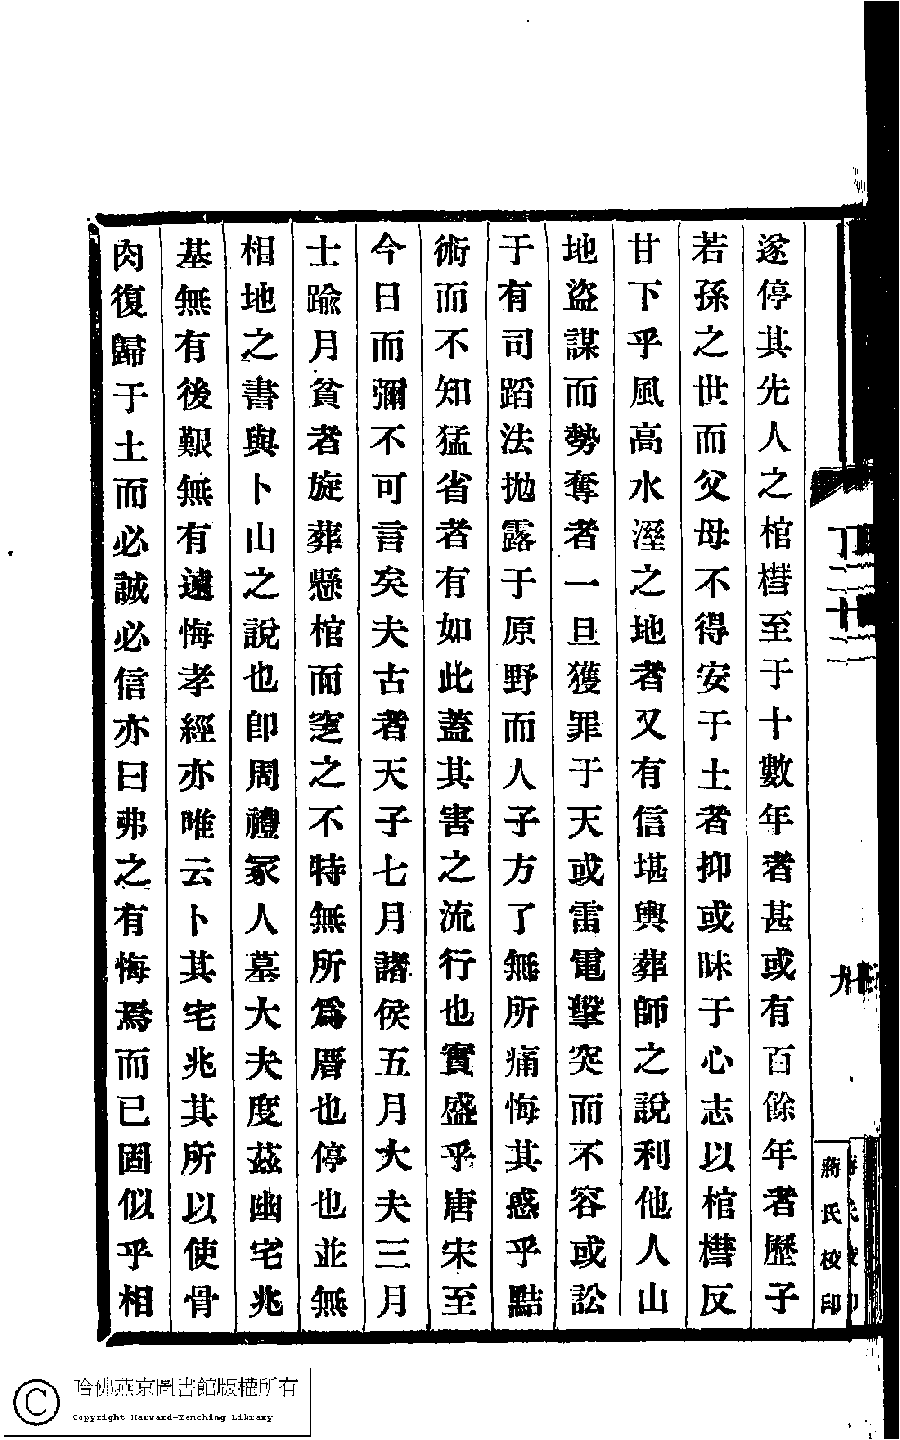 遂停其先人之棺櫘至于十數年者甚或有百餘年者歷子
若孫之世而父母不得安于土者抑或昧于心志以棺櫘反
甘下乎風高水溼之地者又有信堪輿葬師之說利他人山
地盜謀而勢奪者一旦獲罪于天或雷電擊突而不容或訟
于有司蹈法拋露于原野而人子方了無所痛悔其惑乎黠
術而不知猛省者有如此蓋其害之流行也實盛乎唐宋至
今日而彌不可言矣夫古者天子七月諸侯五月大夫三月
士踰月貧者旋葬懸棺而窆之不特無所爲厝也停也並無
相地之書與卜山之說也卽周禮冢人墓大夫度茲幽宅兆
基無有後艱無有遠悔孝經亦唯云卜其宅兆其所以使骨
肉復歸于土而必誠必信亦曰弗之有悔焉而已固似乎相
蔣氏校印
哈佛燕京圖書館版權所有
Copyright Harvard-Yenching Library